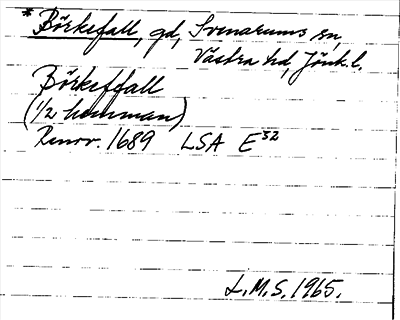 * Börkefall, gd, Svenarums sn,
Västra hd, Jönk.l.
Börkeffall
(1/2 hemman)
Renov. 1689 LSA E32
L.M.S. 1965.